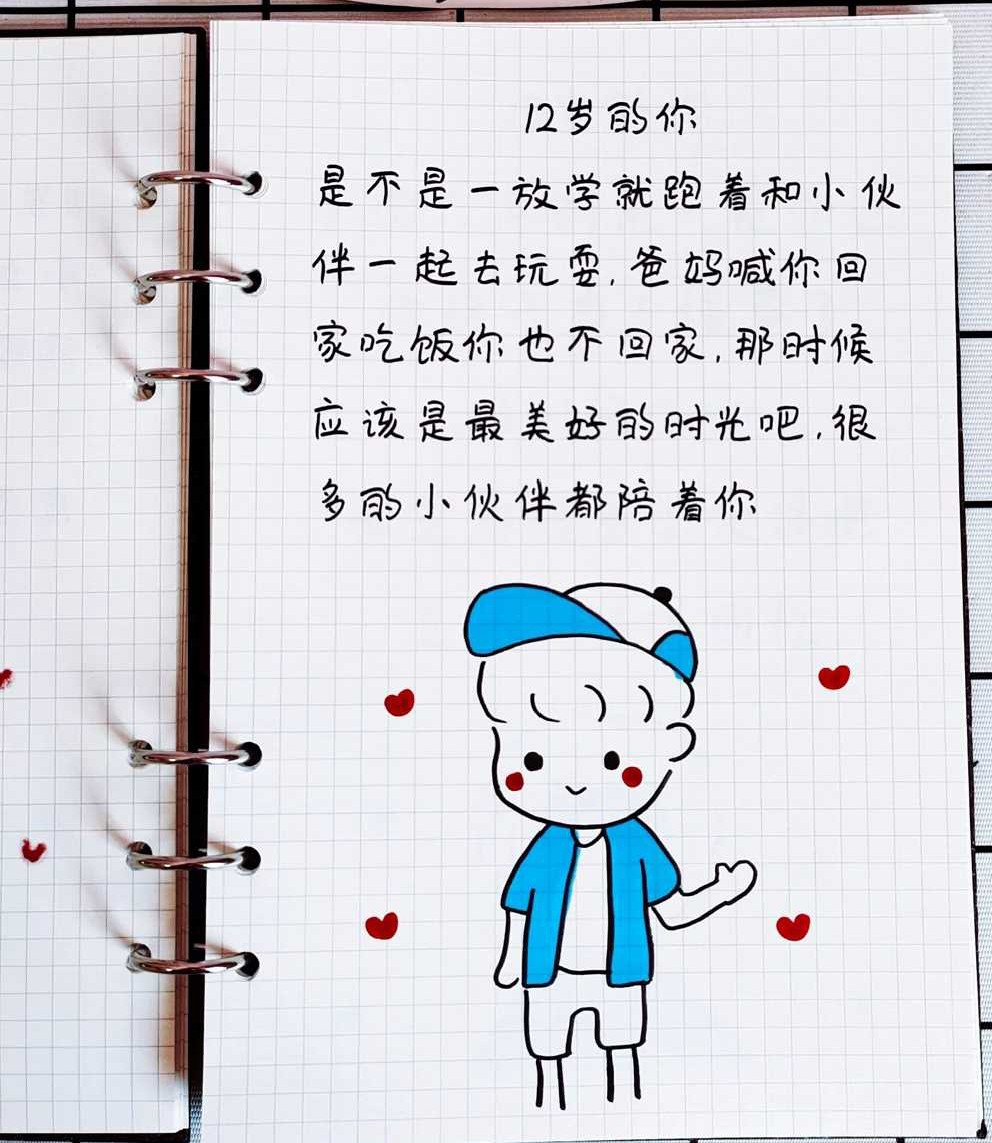 12岁的你
是不是一放学就跑着和小伙
伴一起去玩耍,爸妈喊你回
家吃饭你也不回家,那时候
应该是最美好的时光吧,很
多的小伙伴都陪着你